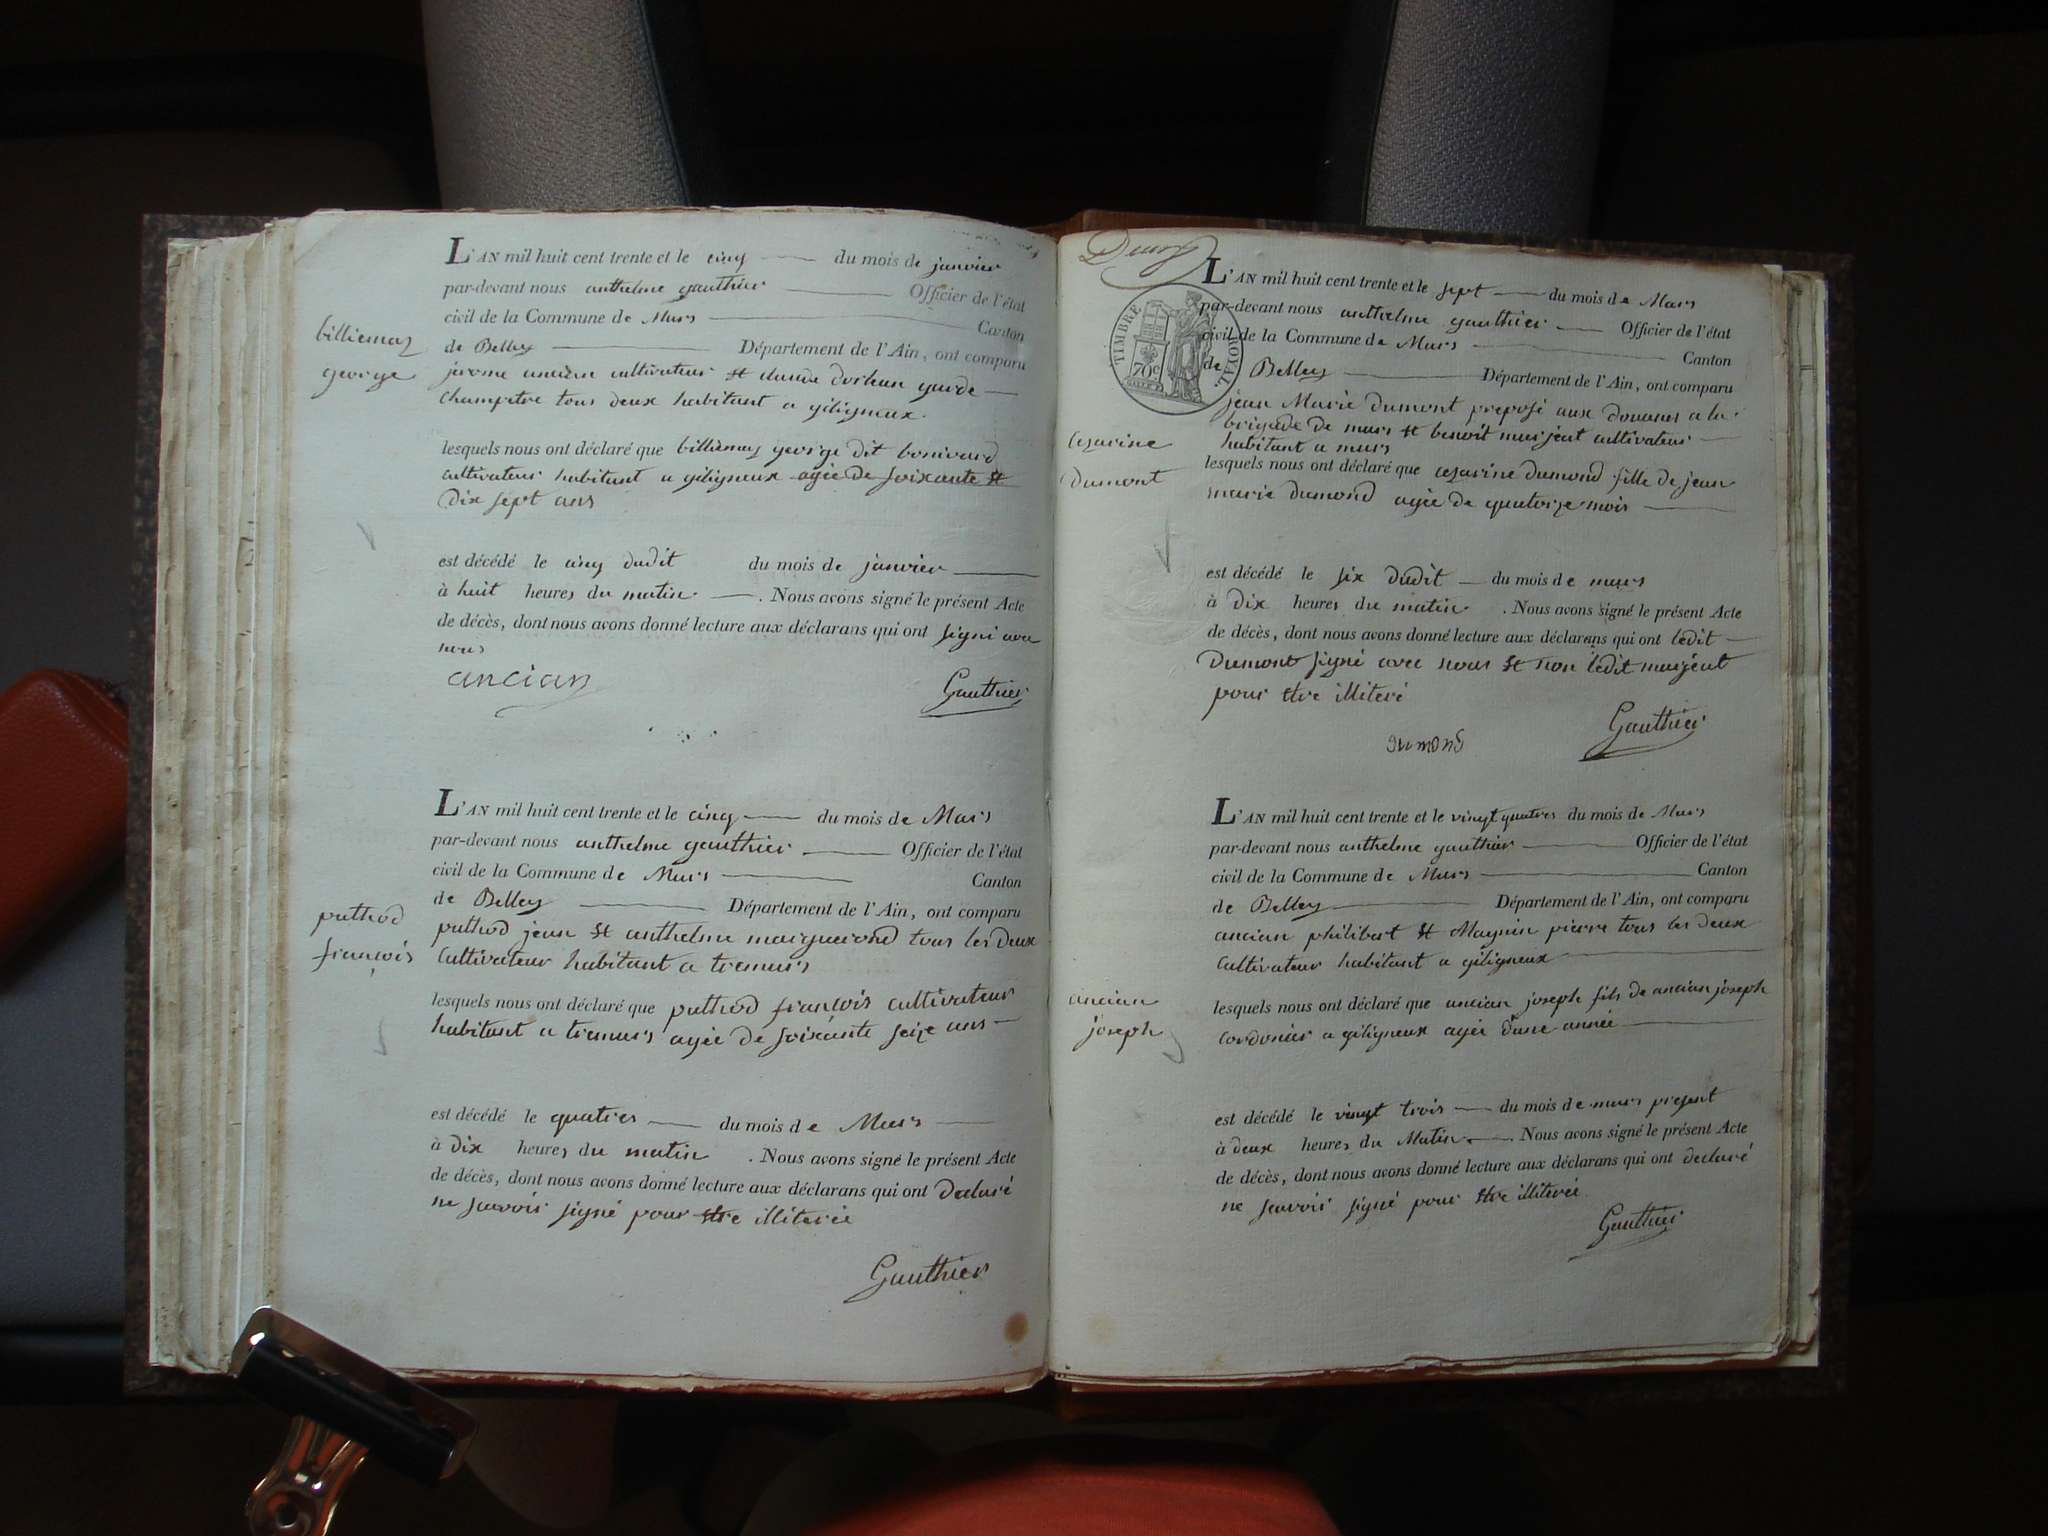 L'AN mil huit cent trente et le cinq du mois de janvier
par-devant nous anthelme gauthier Officier de l'état
civil de la Commune de Murs Canton
de Belley Département de l'Ain, ont comparu
jerome ancian cultivateur et claude garde
champetre tous deux habitant a giligneux.
billiemaz
george
lesquels nous ont déclaré que billiemaz george dit bonivard
cultivateur habitant a giligneux agée de soixante et
Dix sept ans
est décédé le cinq dudit du mois de janvier
à huit heures du matin . Nous avons signé le présent Acte
de décès, dont nous avons donné lecture aux déclarans qui ont signé avec
nous
ancian Gauthier
L'AN mil huit cent trente et le cinq du mois de Mars
par-devant nous anthelme gauthier Officier de l'état
civil de la Commune de Murs Canton
de Belley Département de l'Ain, ont comparu
puthod jean et anthelme maiguerond tous les deux
cultivateur habitant a tremurs
puthod
françois
lesquels nous ont déclaré que puthod françois cultivateur
habitant a tremurs agée de soixante seize ans
est décédé le quatres du mois de Mars
à dix heures du matin . Nous avons signé le présent Acte
de décès, dont nous avons donné lecture aux déclarans qui ont declaré
ne savoir signé pour etre illiterée
Gauthier
TIMBRE ROYAL
70c
L'AN mil huit cent trente et le sept du mois de Mars
par-devant nous anthelme gauthier Officier de l'état
civil de la Commune de Murs Canton
de Belley Département de l'Ain, ont comparu
jean Marie dumont preposé aux douanes a la
brigade de murs et benoit murjeut cultivateur
habitant a murs
cezarine
Dumont
lesquels nous ont déclaré que cezarine dumond fille de jean
marie dumond agée de quatorze mois
est décédé le six dudit du mois de murs
à Dix heures du matin . Nous avons signé le présent Acte
de décès, dont nous avons donné lecture aux déclarans qui ont ledit
Dumont signé avec nous et non ledit murjeut
pour etre illiteré
Gauthier
dumond
L'AN mil huit cent trente et le vingt quatres du mois de Mars
par-devant nous anthelme gauthier Officier de l'état
civil de la Commune de Murs Canton
de Belley Département de l'Ain, ont comparu
ancian philibert et Maynin pierre tous les deux
cultivateur habitant a giligneux
ancian
joseph
lesquels nous ont déclaré que ancian joseph fils de ancian joseph
cordonier a giligneux agée dune année
est décédé le vingt trois du mois de murs present
à deux heures du Matin . Nous avons signé le présent Acte
de décès, dont nous avons donné lecture aux déclarans qui ont declaré
ne savoir signé pour etre illiterée
Gauthier